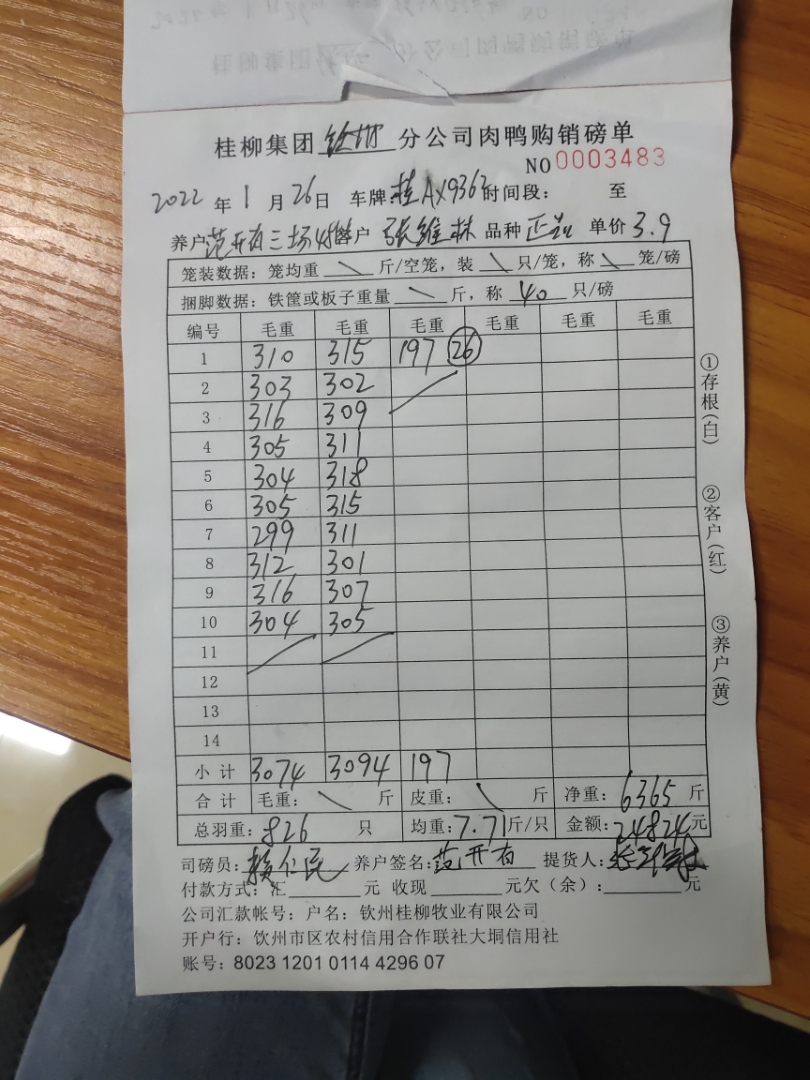 桂柳集团 钦州 分公司肉鸭购销磅单
NO 0003483
2022 年 1 月 26 日 车牌:桂AX9363 时间段: 至
养户 范开有三场4栋 客户 张维林 品种 正 单价 3.9
笼装数据:笼均重 \ 斤/空笼,装 \ 只/笼,称 \ 笼/磅
捆脚数据:铁筐或板子重量 \ 斤,称 40 只/磅
编号 毛重 毛重 毛重 毛重 毛重 毛重
1 310 315 197 26
2 303 302
3 316 309
4 305 311
5 304 318
6 305 315
7 299 311
8 312 301
9 316 307
10 304 305
11
12
13
14
小计 3074 3094 197
合计 毛重: \ 斤 皮重: \ 斤 净重: 6365 斤
总羽重: 826 只 均重: 7.71 斤/只 金额: 24824 元
司磅员: 仁民 养户签名: 范开有 提货人: 张维林
付款方式:汇 元 收现 元欠(余): 元
公司汇款帐号:户名:钦州桂柳牧业有限公司
开户行:钦州市区农村信用合作联社大垌信用社
账号:8023 1201 0114 4296 07
①存根(白)
②客户(红)
③养户(黄)